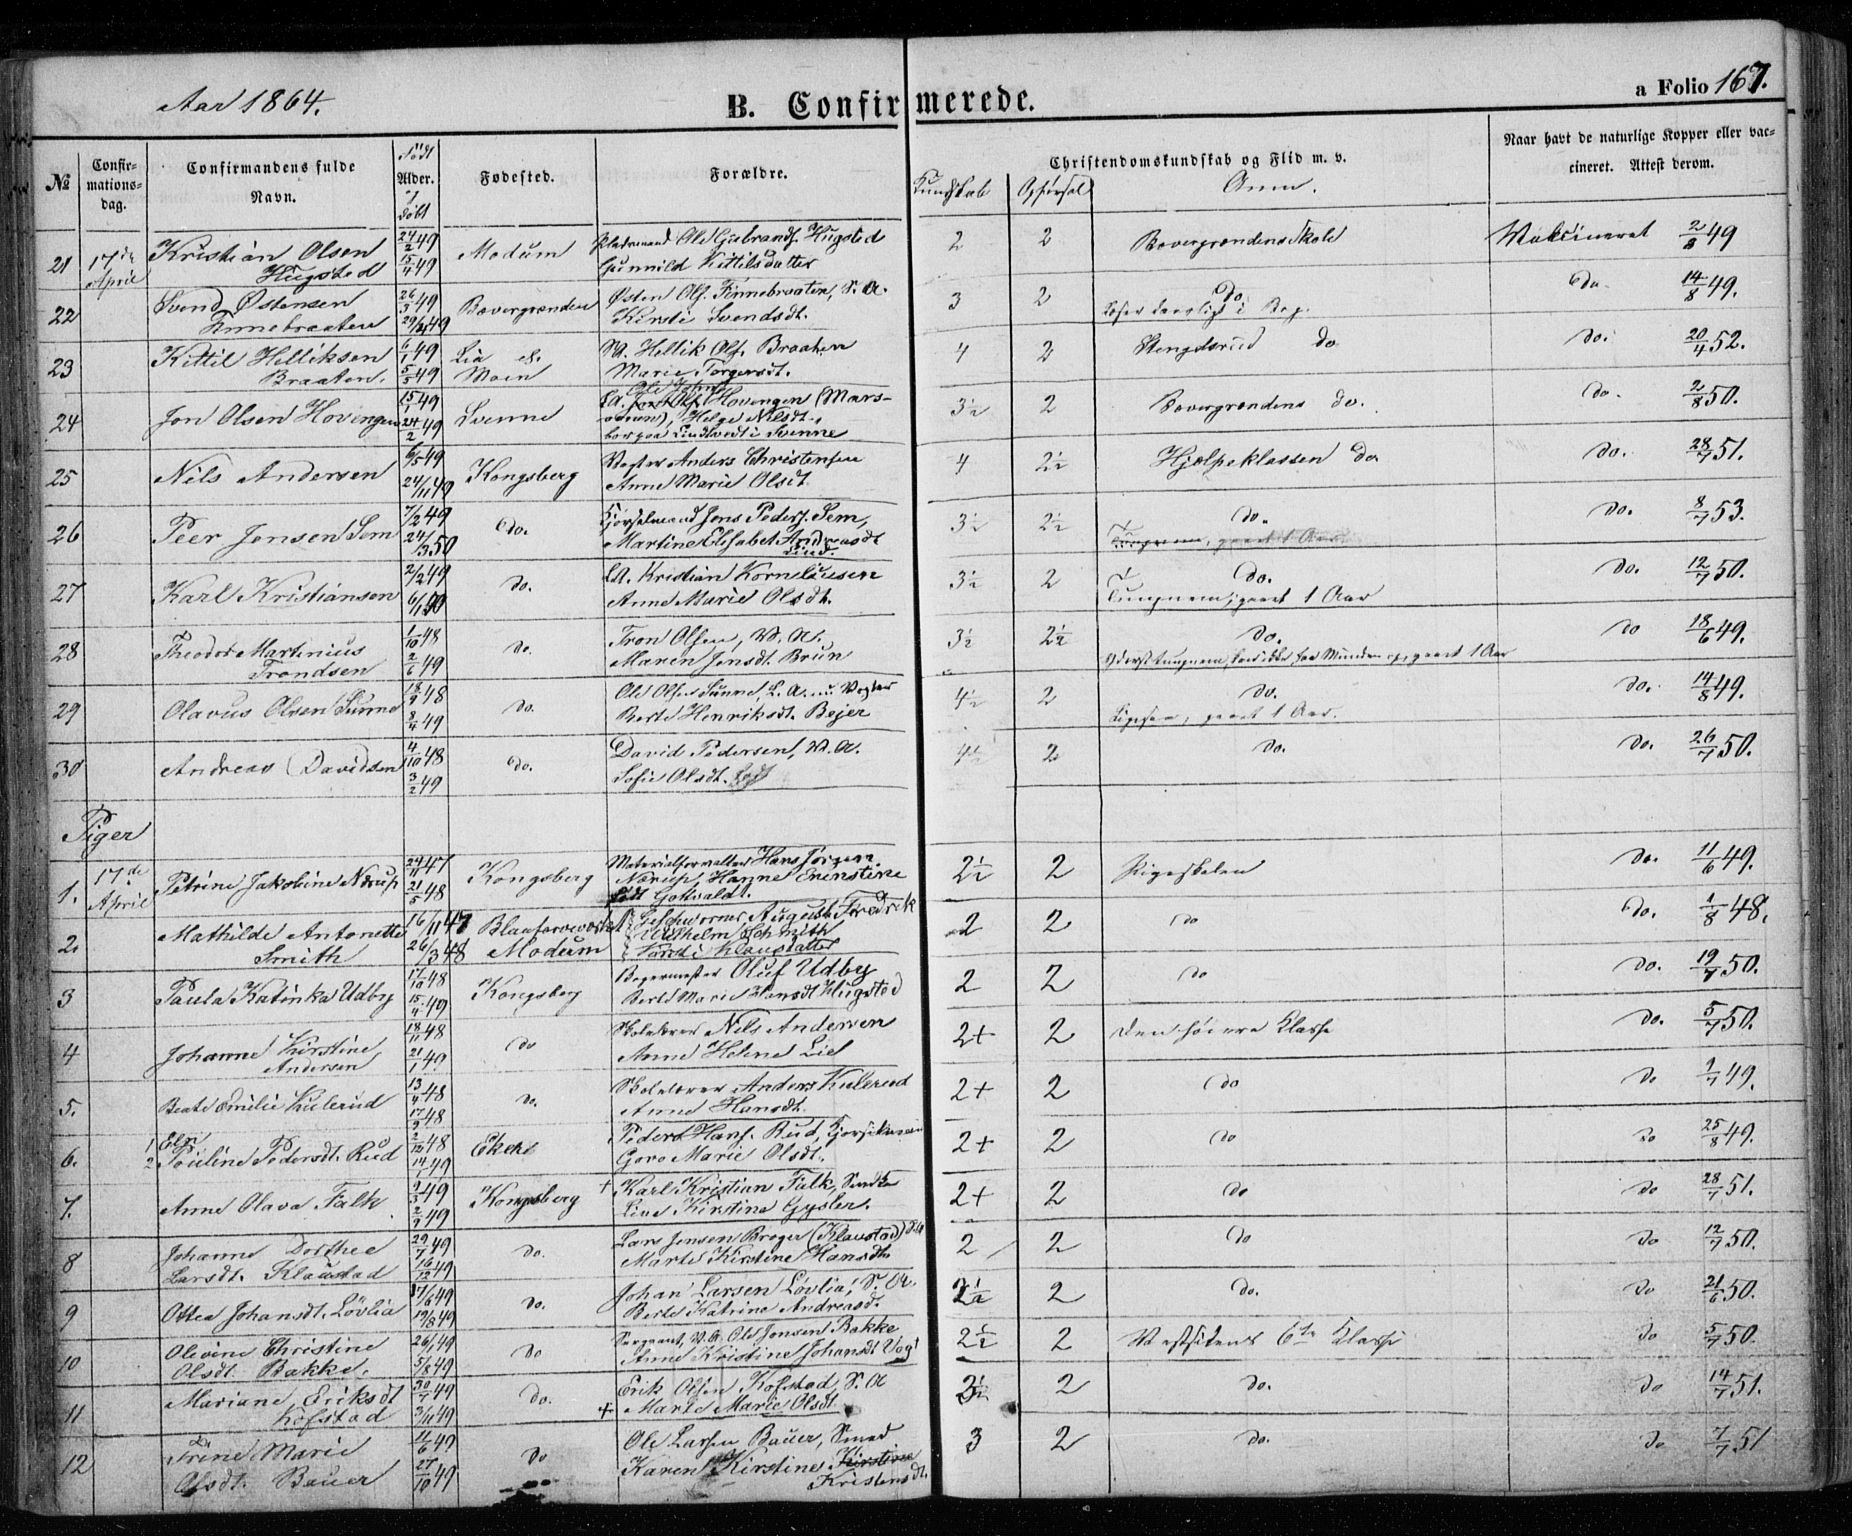 Aar 1864.
B. Confirmerede.
a Folio 167.
№
Confirmationsdag.
Confirmandens fulde Navn.
Født
Alder.
Døbt
Fødested.
Forældre.
Christendomskundskab og Flid m. v.
Kundskab
Opførsel
Anm.
Naar havt de naturlige Kopper eller vaccineret. Attest derom.
21 17de April Kristian Olsen Hugstad 24/2 49 15/4 49 Modum Ole Gulbrands. Hugstad Gunnild Kittilsdatter 2 2 Bævergrændens Skole Vaksineret 2/8 49
22 Svend Østensen Finnebraaten 26/3 49 29/4 49 Bævergrænden Østen Ols. Finnebraaten, S. A. Kirsti Svendsdt. 3 2 do. do. 14/8 49.
23 Kittil Helliksen Braaten. 6/1 49 5/5 49 Lia Moen Hellik Ols. Braaten Marie Torgersdt. 4 2 Stengelsrud do do. 20/4 52.
24 Jon Olsen Hovengen 15/1 49 24/2 49 Svenne Hovengen Helge Nilsdt. 3½ 2 Bævergrændens do. do. 2/8 50.
25 Nils Andersen 6/5 49 24/11 49 Kongsberg Vogter Anders Christensen Anne Marie Olsdt. 4 2½ Hjælpeklassen do do. 28/7 51.
26 Peer Jensen Sem 7/2 49 24/3 50 do. Kjørselmand Jens Peders. Sem, Martine Elisabet Andreasdt Lind. 3½ 2½ do. Tungnem, gaaet 1 Aar do. 8/7 53.
27 Karl Kristiansen 2/2 49 6/1 50 do. Kristian Korneliusen Anne Marie Olsdt. 3½ 2 do. Tungnem, gaaet 1 Aar do. 12/7 50.
28 Theodor Martinius Trondsen 1/10 48 2/6 49 do. Tron Olsen, V. A. Maren Jensdt. Brun 3½ 2½ do. gaaet 1 Aar do 18/6 49.
29 Olavus Olsen Sunne 18/9 48 8/4 49 do. Ole Olsen Sunne Vogter Berte Henriksdt. Bejer 4½ 2 do. gaaet 1 Aar. do. 14/8 49.
30 Andreas Davidsen 4/10 48 3/2 49 do. David Pedersen, V. A. Sofie Olsdt. 4½ 2 do. do. 26/7 50.
Piger
1. 17de April Petrine Jakobine Nørup 24/11 47 21/5 48 Kongsberg Materialforvalter Hans Jørgen Nørup, Hanne Ernstine Gottvaldt. 2½ 2 Pigeskolen do. 11/6 49.
2. Mathilde Antonette Smith 16/11 47 26/3 48 Blaafarveværket Modum Geschworner August Fredrik Wilhelm Schmith 2 2 do do. 1/8 48.
3 Paula Katinka Udby 17/10 48 15/4 49 Kongsberg Bøgermester Oluf Udby Berte Marie Hansdt Hugstad 2 2 do do. 19/7 50.
4 Johanne Kirstine Andersen 18/11 48 21/1 49 do Skolelærer Nils Andersen Anne Helene Liel 2+ 2 den høiere Klasse do. 5/7 50.
5. Beate Emilie Kulerud 13/4 48 17/9 48 do. Skolelærer Anders Kulerud Anne Hansdt. 2+ 2 do do 2/7 49.
6. Elen Pouline Pedersdt. Rud 2/12 48 14/1 49 Ekers Peder Hans. Rud, Kjørselsmand Goro Marie Olsdt. 2+ 2 do do 25/8 49.
7. Anne Olava Falk 9/3 49 2/9 49 Kongsberg + Karl Kristian Falk, Line Kirstine Gysler. 2+ 2 do do 28/7 51.
8 Johanne Dorthee Larsdt. Klaustad 29/7 49 16/12 49 do. Lars Jensen Broger (Klaustad) Marte Kirstine Hansdt. 2 2 do do 12/7 50.
9 Ottea Johansdt. Løvlia 17/6 49 19/8 49 do. Johan Larsen Løvlia, S. A. Berte Katrine Andreasdt. 2½ 2 do. do 21/6 50.
10 Olevine Christine Olsdt. Bakke. 26/1 49 5/8 49 do Sergeant, V. A. Ole Jensen Bakke Anne Kristine Johansdt Vogt 2½ 2 Vestsidens 6te Klasse do 5/7 50.
11 Mariane Eriksdt Kofstad 30/7 49 3/11 49 do. Erik Olsen Kofstad, S. A + Marte Marie Olsdt. 2½ 2 do. do 14/7 51.
12 Trine Marie Olsdt. Bauer 11/6 49 27/10 49 do Ole Larsen Bauer, Smed Karen Kirstine Kirstine Kristensdt. 3 2 do. do 7/7 51